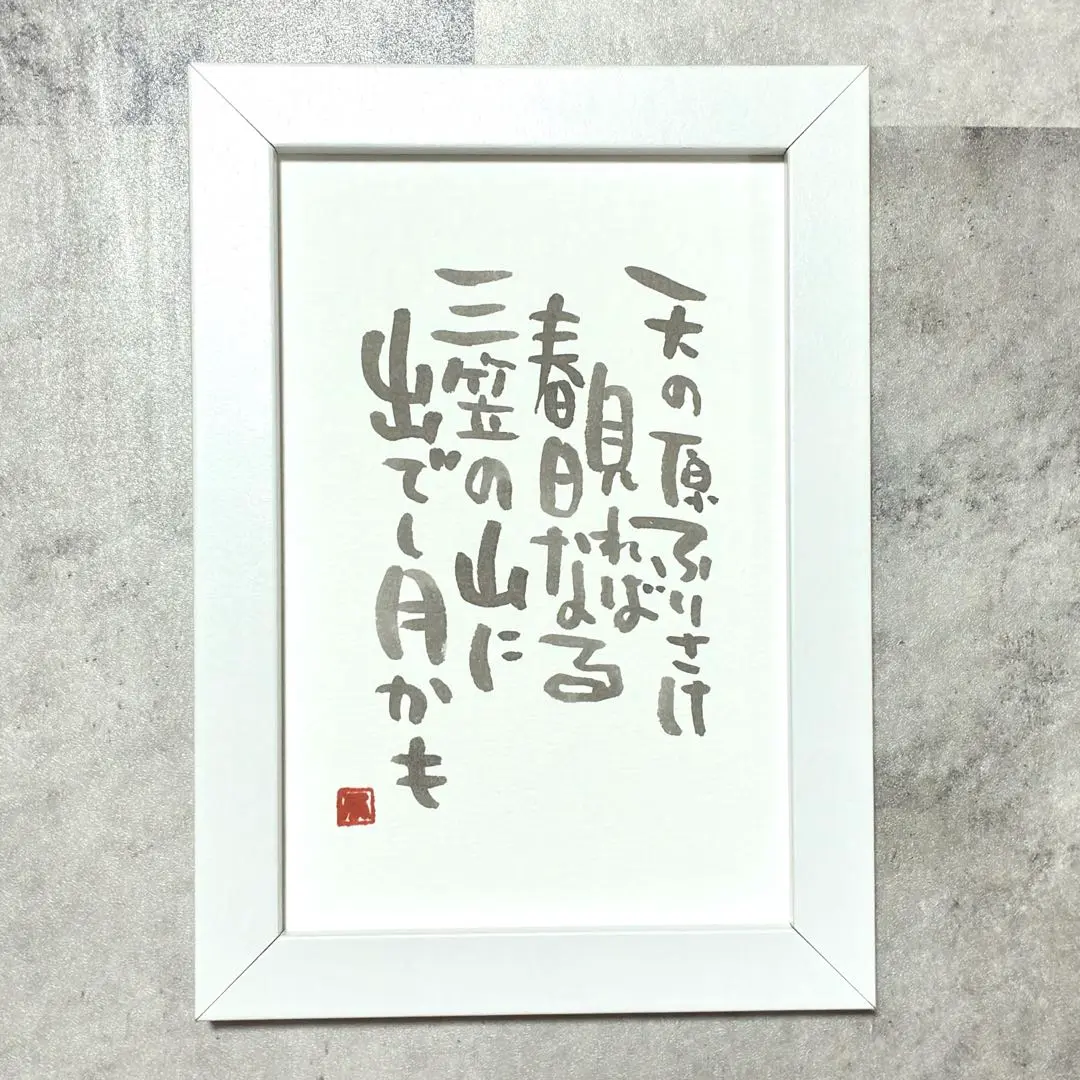 天の原ふりさけ
見れば
春日なる
三笠の山に
出でし月かも